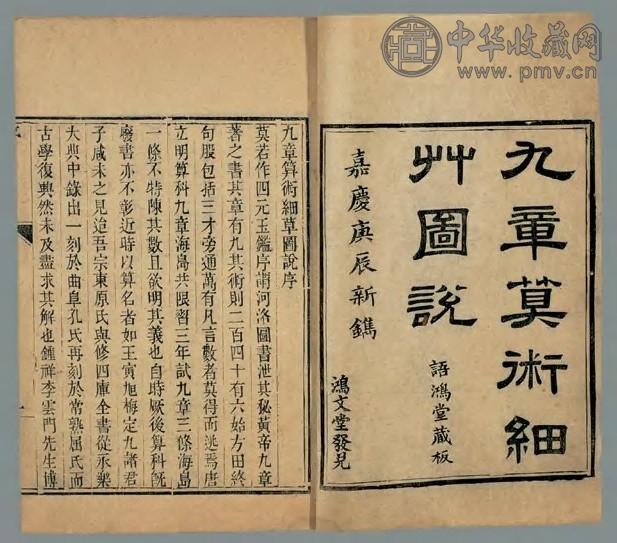 中华收藏网
www.pmv.cn
九章算術細
艸圖說
語鴻堂藏板
嘉慶庚辰新鐫
鴻文堂發兌
九章算術細草圖說序
莫若作四元玉鑑序謂河洛圖書泄其秘黃帝九章
著之書其章有九其術則二百四十有六始方田終
句股包括三才旁通萬有凡言數者莫得而逃焉唐
立明算科九章海島共限習三年試九章三條海島
一條不特陳其數且欲明其義也自時厥後算科旣
廢書亦不彰近時以算名者如王寅旭梅定九諸君
子咸未之見迨吾宗東原氏與修四庫全書從永樂
大典中錄出一刻於曲阜孔氏再刻於常熟屈氏而
古學復興然未及盡求其解也鍾祥李雲門先生博